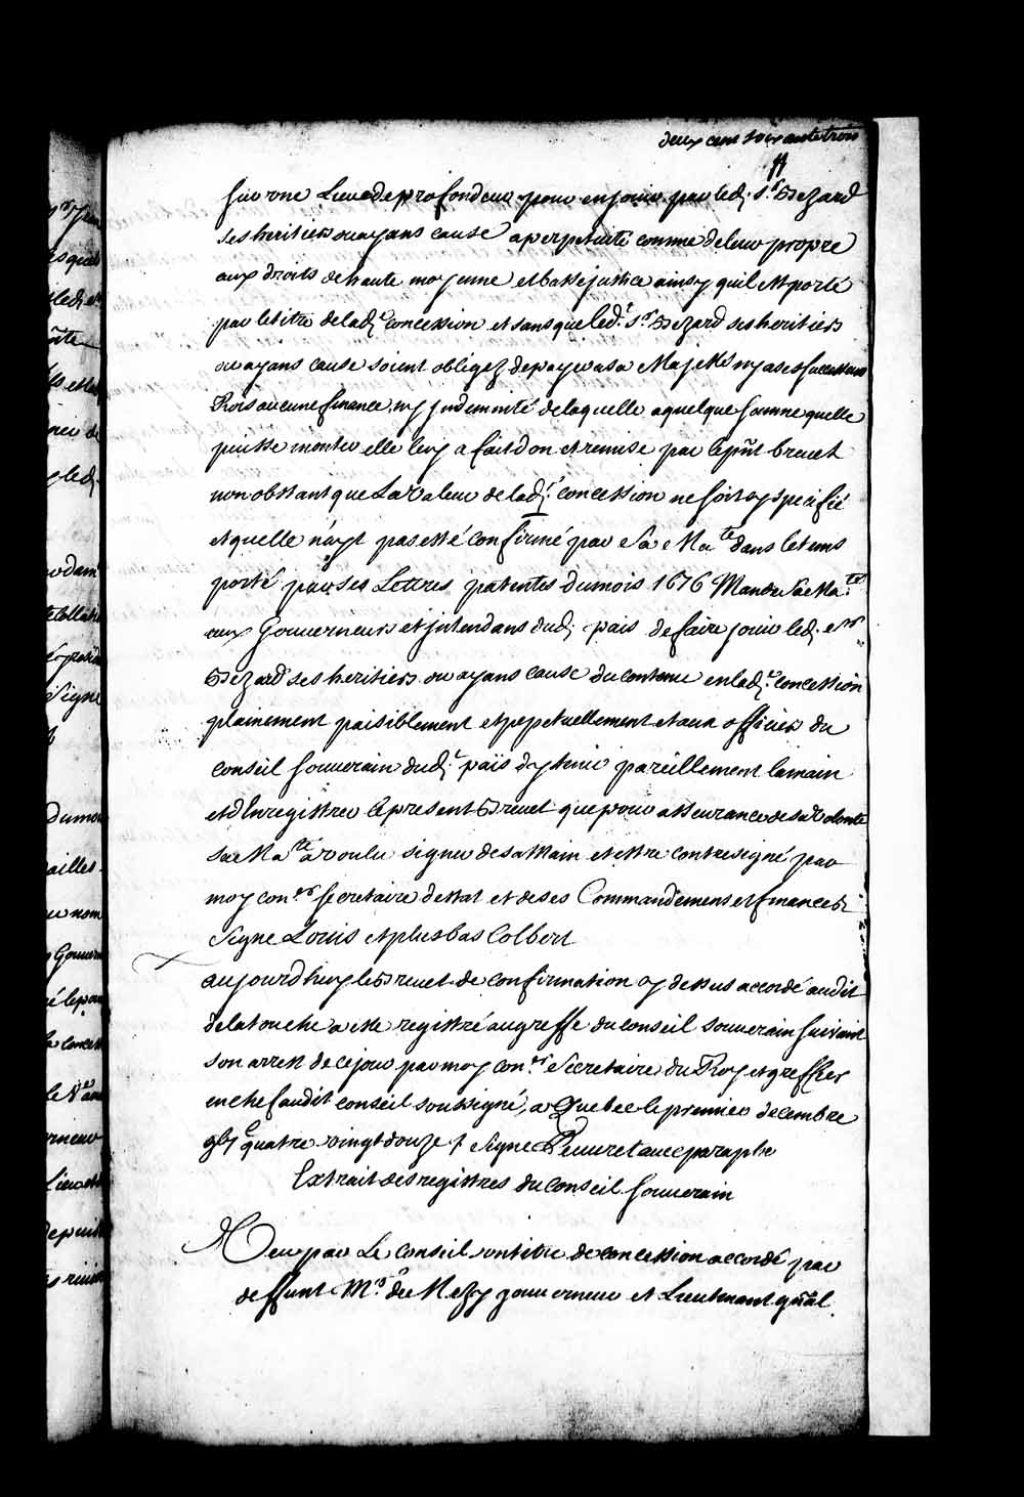 deux cent soixante trois
11
sur une Lieue de profondeur pour en jouir par led. Sr. Dezard
ses heritiers ou ayans cause a perpetuité comme de leur propre
aux droits de haute moyenne et basse justice ainsy quil est porté
par le titre de lad.e concession et sans que led.t Sr. Dezard ses heritiers
ou ayans cause soient obligez de payer a sa Majesté ny a ses successeurs
Rois aucune finance ny Indemnité de laquelle a quelque somme quelle
puisse monter elle luy a fait don et remise par le pñt brevet
nonobstant que La valeur de lad.e concession ne soit cy specifié
et quelle n'ayt pas esté confirmé par Sa Ma.té dans le tems
porté par ses Lettres patentes du mois 1676 Mande Sa Ma.té
aux Gouverneurs et jntendans dud. pais de faire jouir led. Sr
Dezard ses heritiers ou ayans cause du contenu en lad.e concession
plainement paisiblement et perpetuellement et aux officiers du
conseil souverain dud.t païs dy tenir pareillement la main
et d'Enregistrer le present Brevet que pour asseurance de sa volonté
sa Ma.té a voulu signer de sa Main et estre contresigné par
moy con.er secretaire destat et de ses Commandemens et finances
Signe Louis et plus bas Colbert
aujourdhuy le Brevet de confirmation cy dessus accordé audit
delatouche a esté registré au greffe du conseil souverain suivant
son arrest de ce jour par moy con.er Secretaire du Roy et greffier
en chef audit conseil soussigné, a Quebec le premier decembre
gbj.c quatre vingt douze / Signe Peuvret avec paraphe
Extrait des registres du Conseil souverain
Veu par Le Conseil un titre de concession accordé par
deffunt Mr. de Mezy gouverneur et Lieutenant gñal